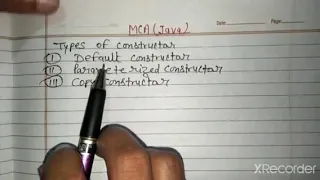 MCA (Java)
Date
Page
Types of constructor
(I) Default constructor
(II) Parameterized constructor
(III) Copy constructor
XRecorder